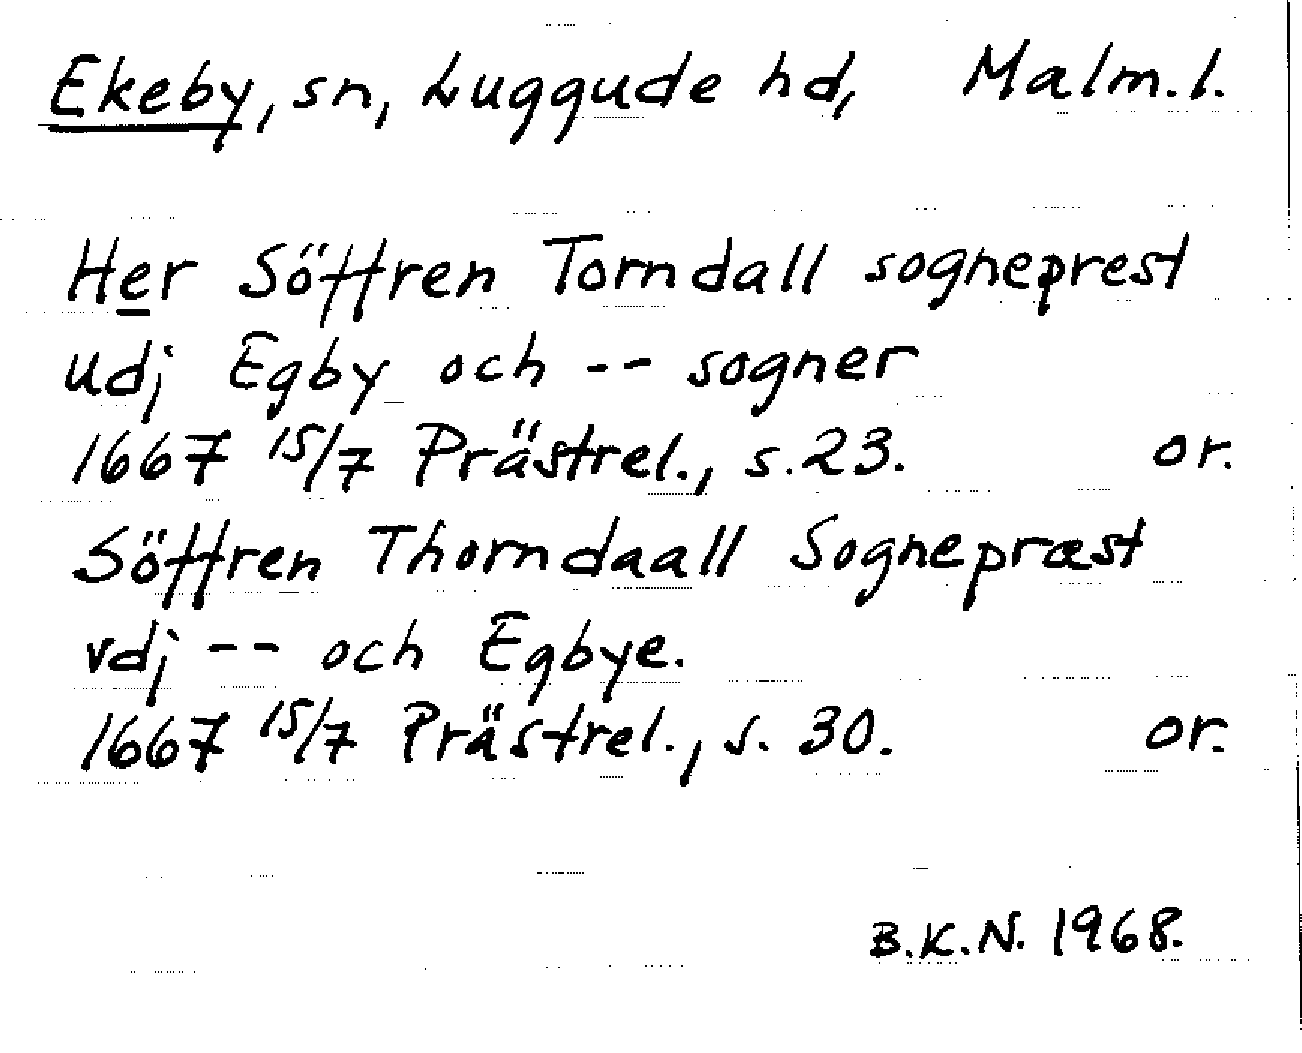 Ekeby, sn, Luggude hd, Malm.l.
Her Söffren Torndall sogneprest
udj Egby och -- sogner
1667 15/7 Prästrel., s.23. or.
Söffren Thorndaall Sognepræst
vdj -- och Egbye.
1667 15/7 Prästrel., s. 30. or.
B.K.N. 1968.